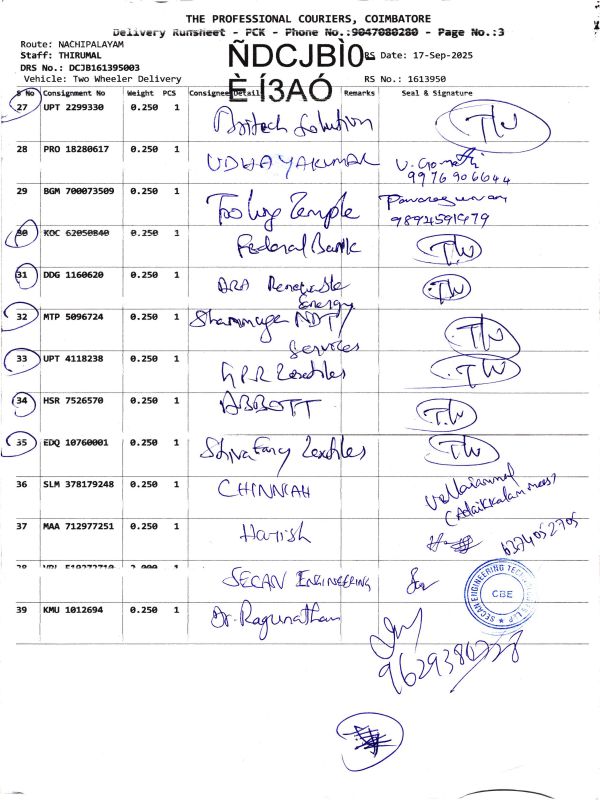 THE PROFESSIONAL COURIERS, COIMBATORE
Delivery Runsheet - PCK - Phone No.:9047080280 - Page No.:3
Route: NACHIPALAYAM
Staff: THIRUMAL
DRS No.: DCJB161395003
Vehicle: Two Wheeler Delivery
ÑDCJBÌ0
È Í3AÓ
RS Date: 17-Sep-2025
RS No.: 1613950
S No Consignment No Weight PCS Consignee Details Remarks Seal & Signature
27 UPT 2299330 0.250 1 Solution
28 PRO 18280617 0.250 1 UDHAYAKUMAR V. Gomathi
9976906644
29 BGM 700073509 0.250 1 Tooling Temple
9894591479
30 KOC 62050840 0.250 1 Federal Bank
31 DDG 1160620 0.250 1 Renewable
Energy
32 MTP 5096724 0.250 1 NDT
Services
33 UPT 4118238 0.250 1 GPR Textiles
34 HSR 7526570 0.250 1 ABBOTT
35 EDQ 10760001 0.250 1 Textiles
36 SLM 378179248 0.250 1 CHINNIAH Vellaiammal
37 MAA 712977251 0.250 1 Harish
6374052705
38 2.000 SECAN ENGINEERING
CBE
39 KMU 1012694 0.250 1 Dr. Ragunathan